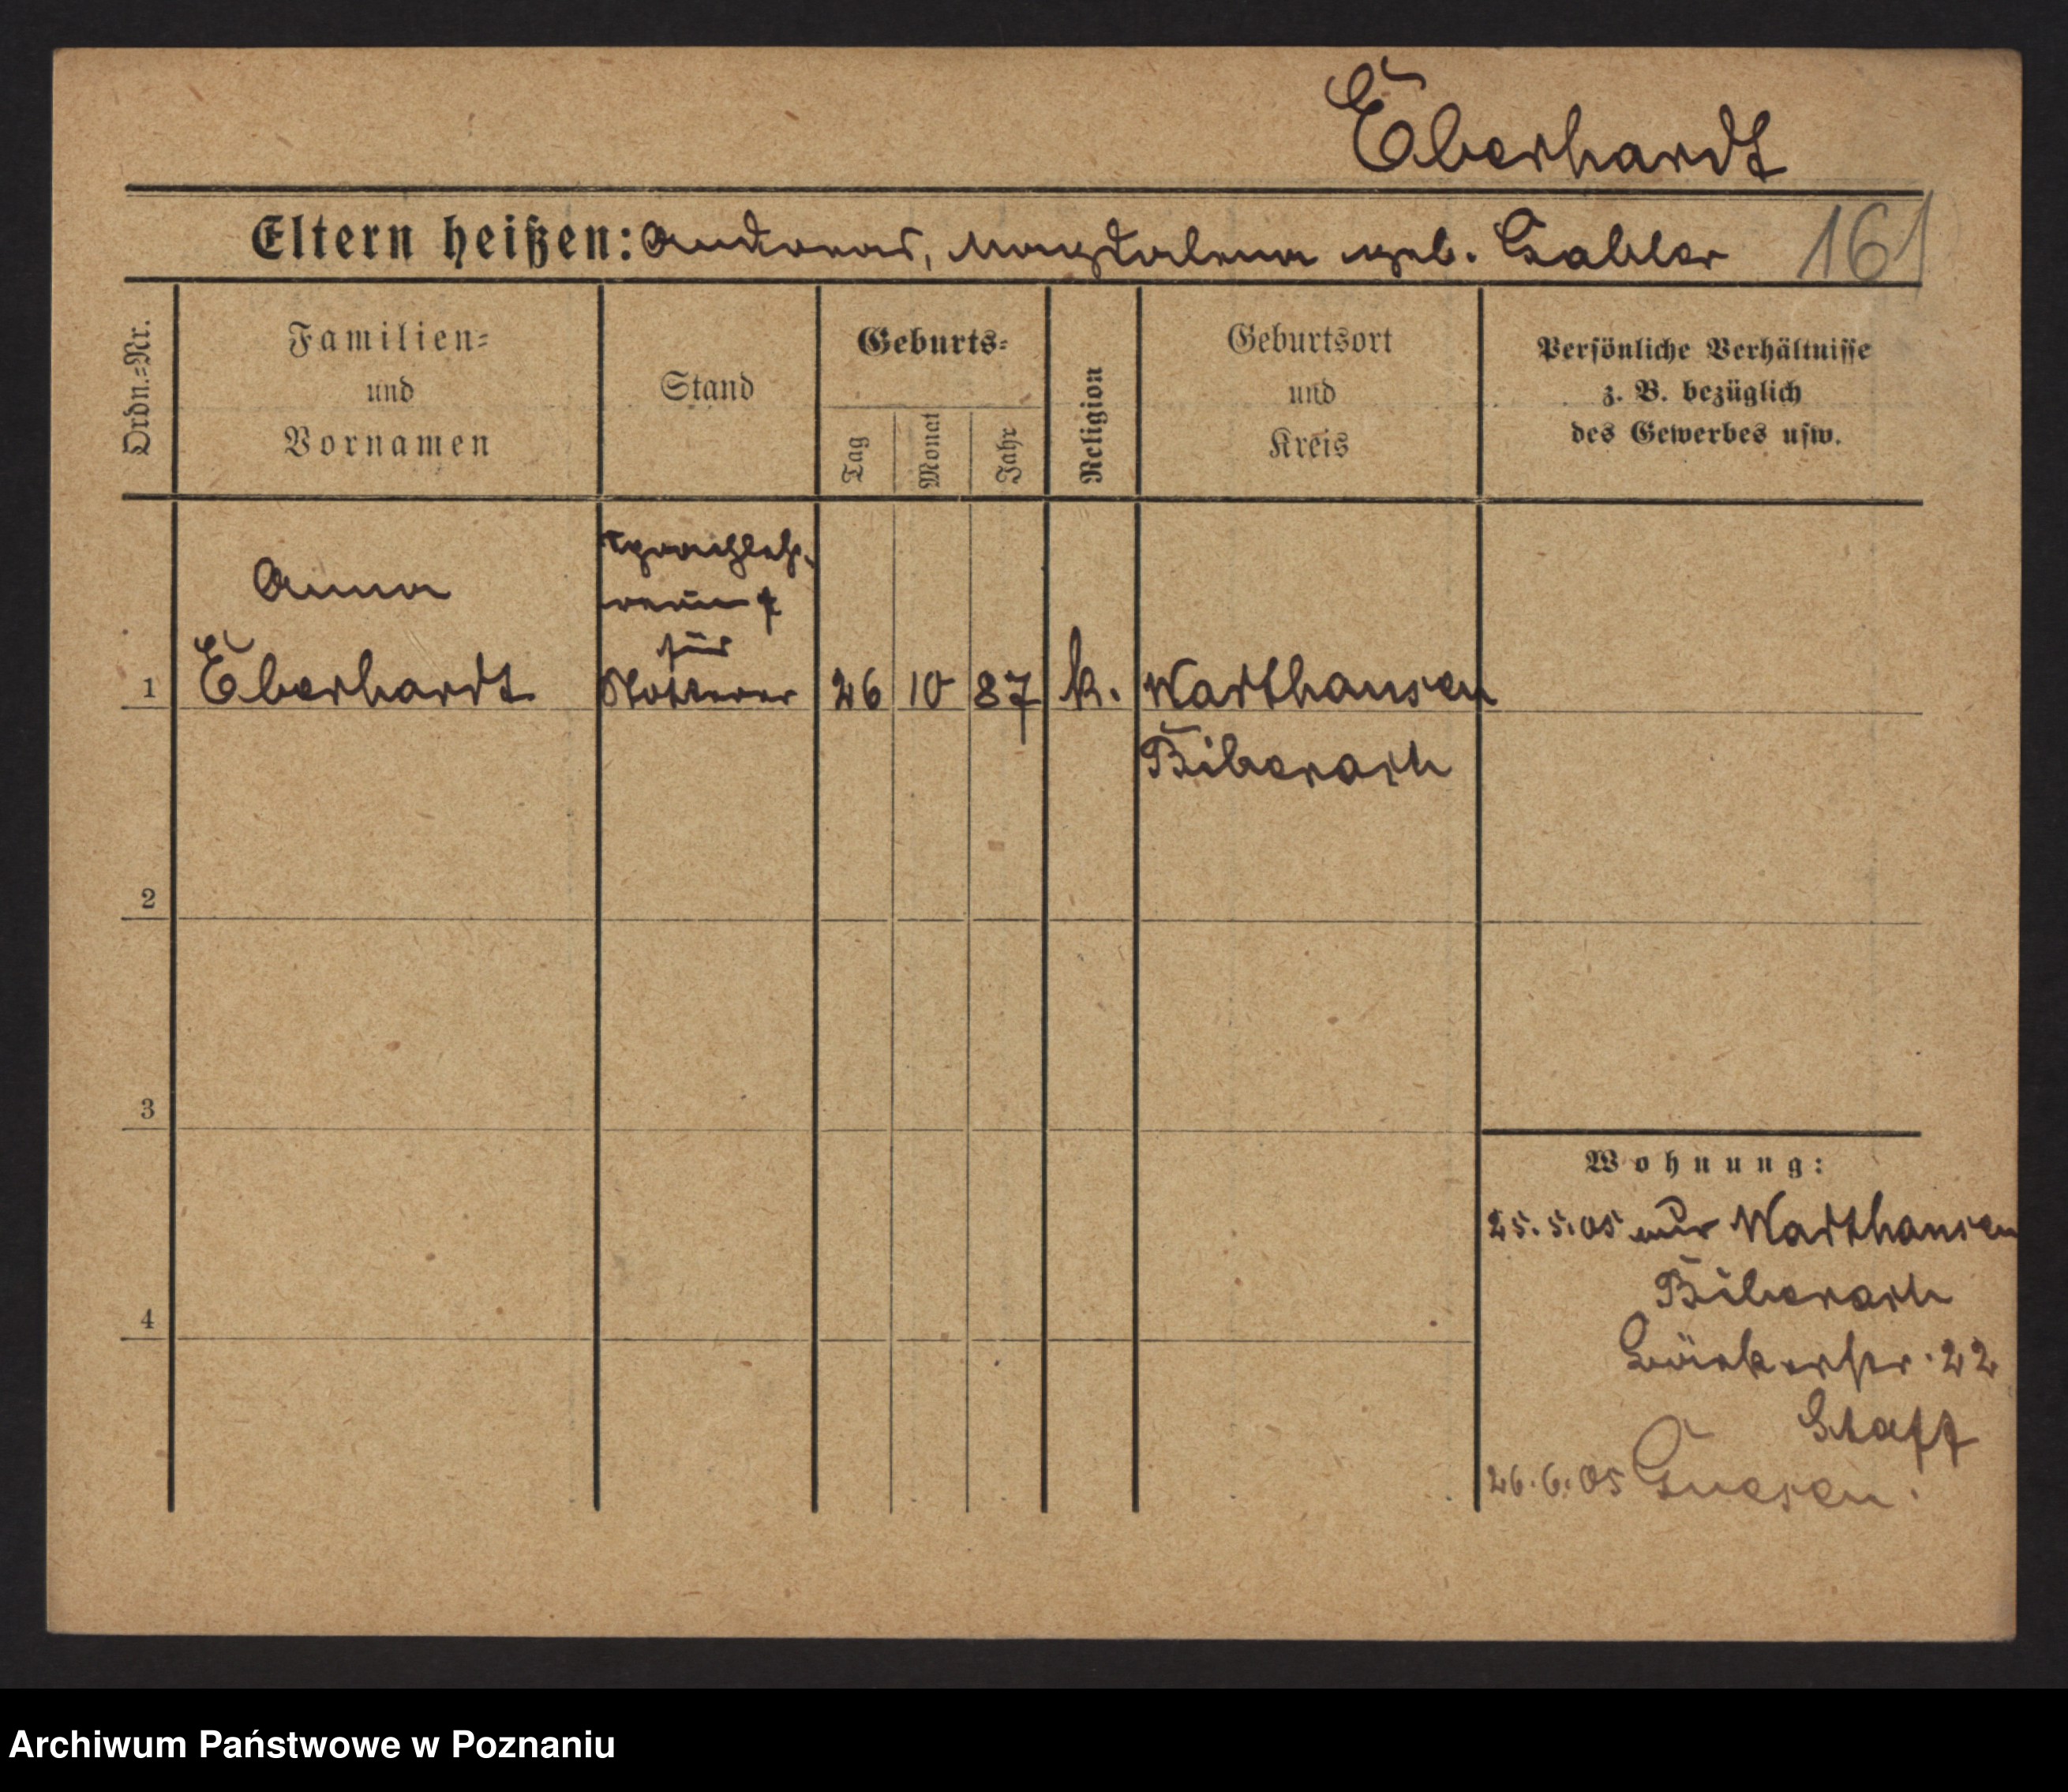 Eberhardt
Eltern heißen: Andreas, Magdalena geb. Gabler
161
Ordn.-Nr.
Familien-
und
Vornamen
Stand
Geburts-
Tag
Monat
Jahr
Religion
Geburtsort
und
Kreis
Persönliche Verhältnisse
z. B. bezüglich
des Gewerbes usw.
Anna
Sprachleh-
rerin f
für
Stotterer
1 Eberhardt 26 10 87 k. Warthausen
Biberach
2
3
4
Wohnung:
25.5.05 aus Warthausen
Biberach
Bäckerstr. 22
26.6.05 Gnesen.
Archiwum Państwowe w Poznaniu